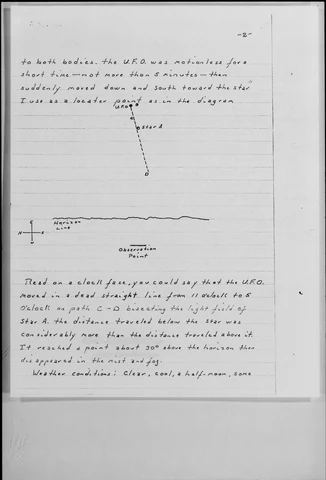 -2-
to both bodies. the U.F.O. was motionless for a
short time—not more than 5 minutes—then
suddenly moved down and south toward the star
I use as a locater point as in the diagram
U.F.O.
C
Star A
D
N
S
Horizon
Line
Observation
Point
Read on a clock face, you could say that the U.F.O.
moved in a dead straight line from 11 oclock to 5
oclock on path C-D bisecting the light field of
Star A. the distance traveled below the star was
considerably more than the distance traveled above it.
It reached a point about 30° above the horizon then
disappeared in the mist and fog.
Weather conditions: Clear, cool, a half-moon, some